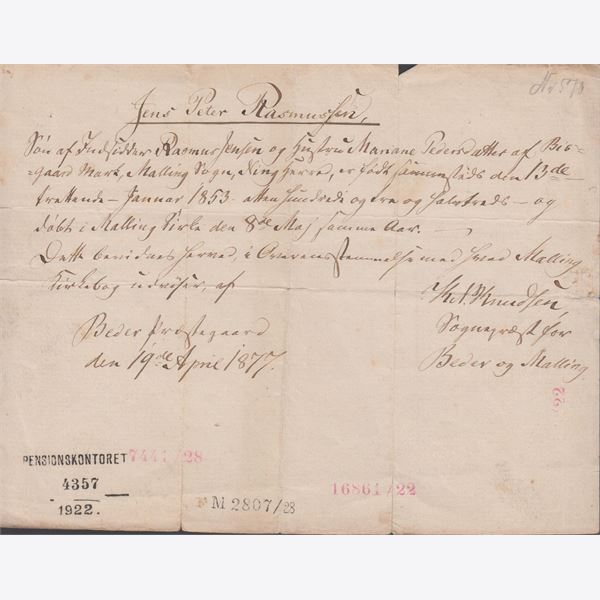 No 578
Jens Peter Rasmussen,
Søn af Indsidder Rasmus Jensen og Hustru Mariane Pedersdatter af Bis-
gaard Mark, Malling Sogn, Ning Herred, er født sammesteds den 13de
trettende - Januar 1853 atten hundrede og tre og halvtreds - og
døbt i Malling Kirke den 8de Maj samme Aar.
Dette bevidnes herved, i Overensstemmelse med hvad Malling
Kirkebog udviser, af
Knudsen,
Sognepræst for
Beder og Malling
Beder Præstegaard
den 19de April 1877.
22
PENSIONSKONTORET 7441/28
4357
1922.
M 2807/28
16861/22